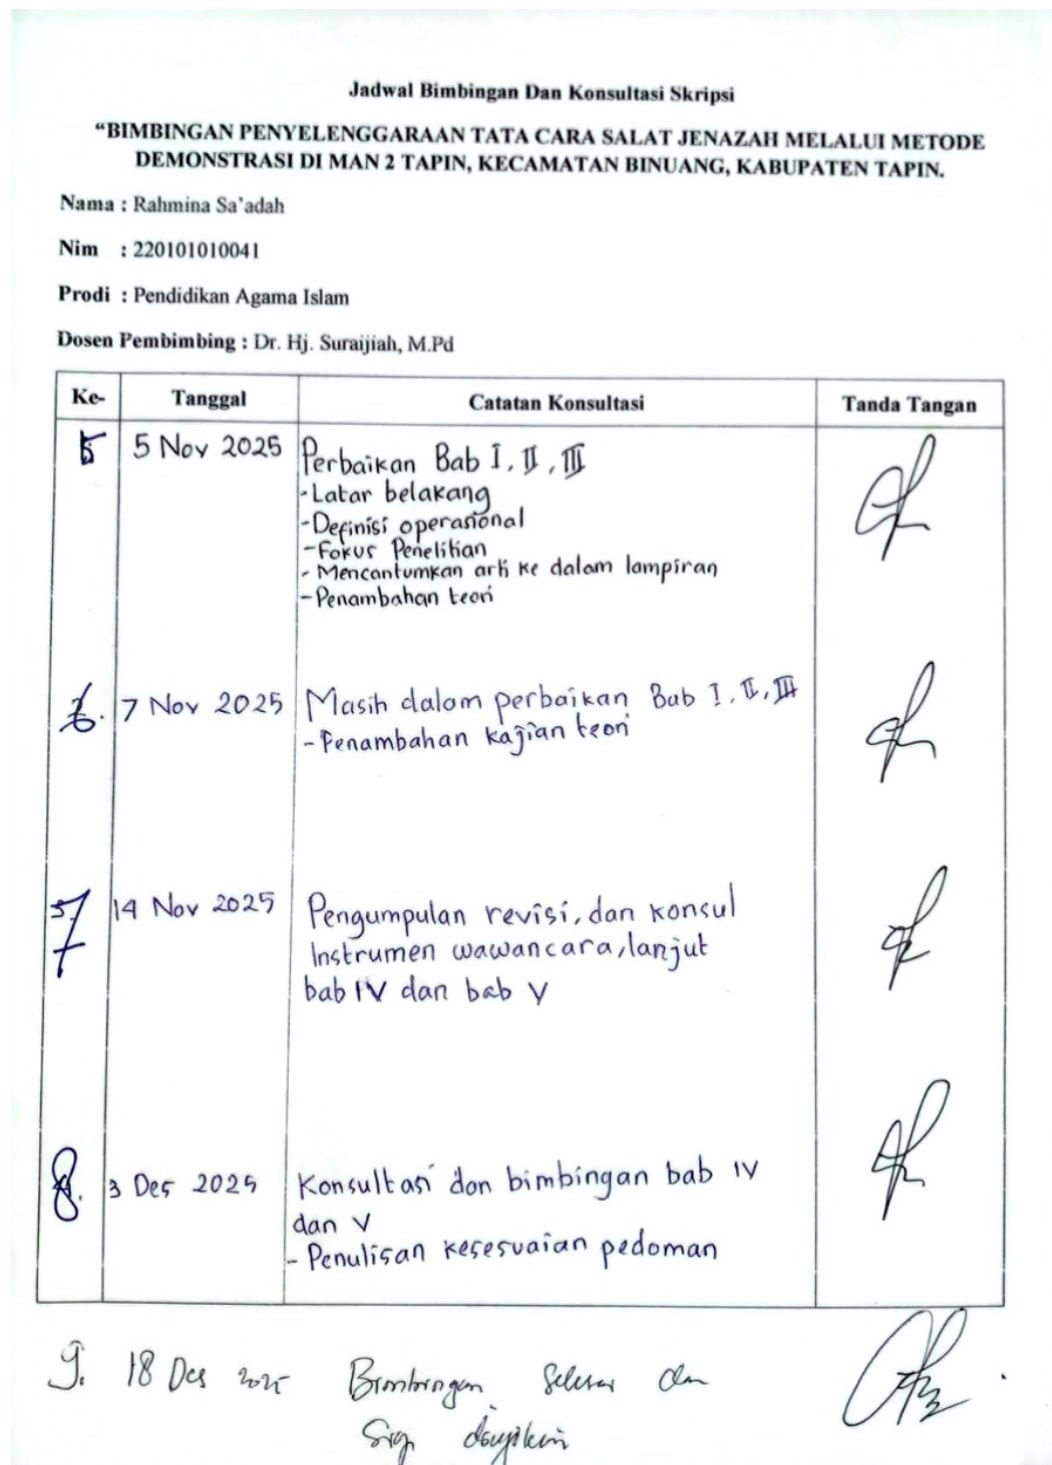 Jadwal Bimbingan Dan Konsultasi Skripsi
“BIMBINGAN PENYELENGGARAAN TATA CARA SALAT JENAZAH MELALUI METODE
DEMONSTRASI DI MAN 2 TAPIN, KECAMATAN BINUANG, KABUPATEN TAPIN.
Nama : Rahmina Sa’adah
Nim : 220101010041
Prodi : Pendidikan Agama Islam
Dosen Pembimbing : Dr. Hj. Suraijiah, M.Pd
Ke- Tanggal Catatan Konsultasi Tanda Tangan
5 5 Nov 2025 Perbaikan Bab I, II, III
-Latar belakang
-Definisi operasional
-Fokus Penelitian
- Mencantumkan arti ke dalam lampiran
-Penambahan teori
6. 7 Nov 2025 Masih dalam perbaikan Bab I, II, III
-Penambahan kajian teori
7 14 Nov 2025 Pengumpulan revisi, dan konsul
Instrumen wawancara, lanjut
bab IV dan bab V
8. 3 Des 2025 Konsultasi dan bimbingan bab IV
dan V
- Penulisan kesesuaian pedoman
9. 18 Des 2025 Bimbingan selesai dan
siap diujikan